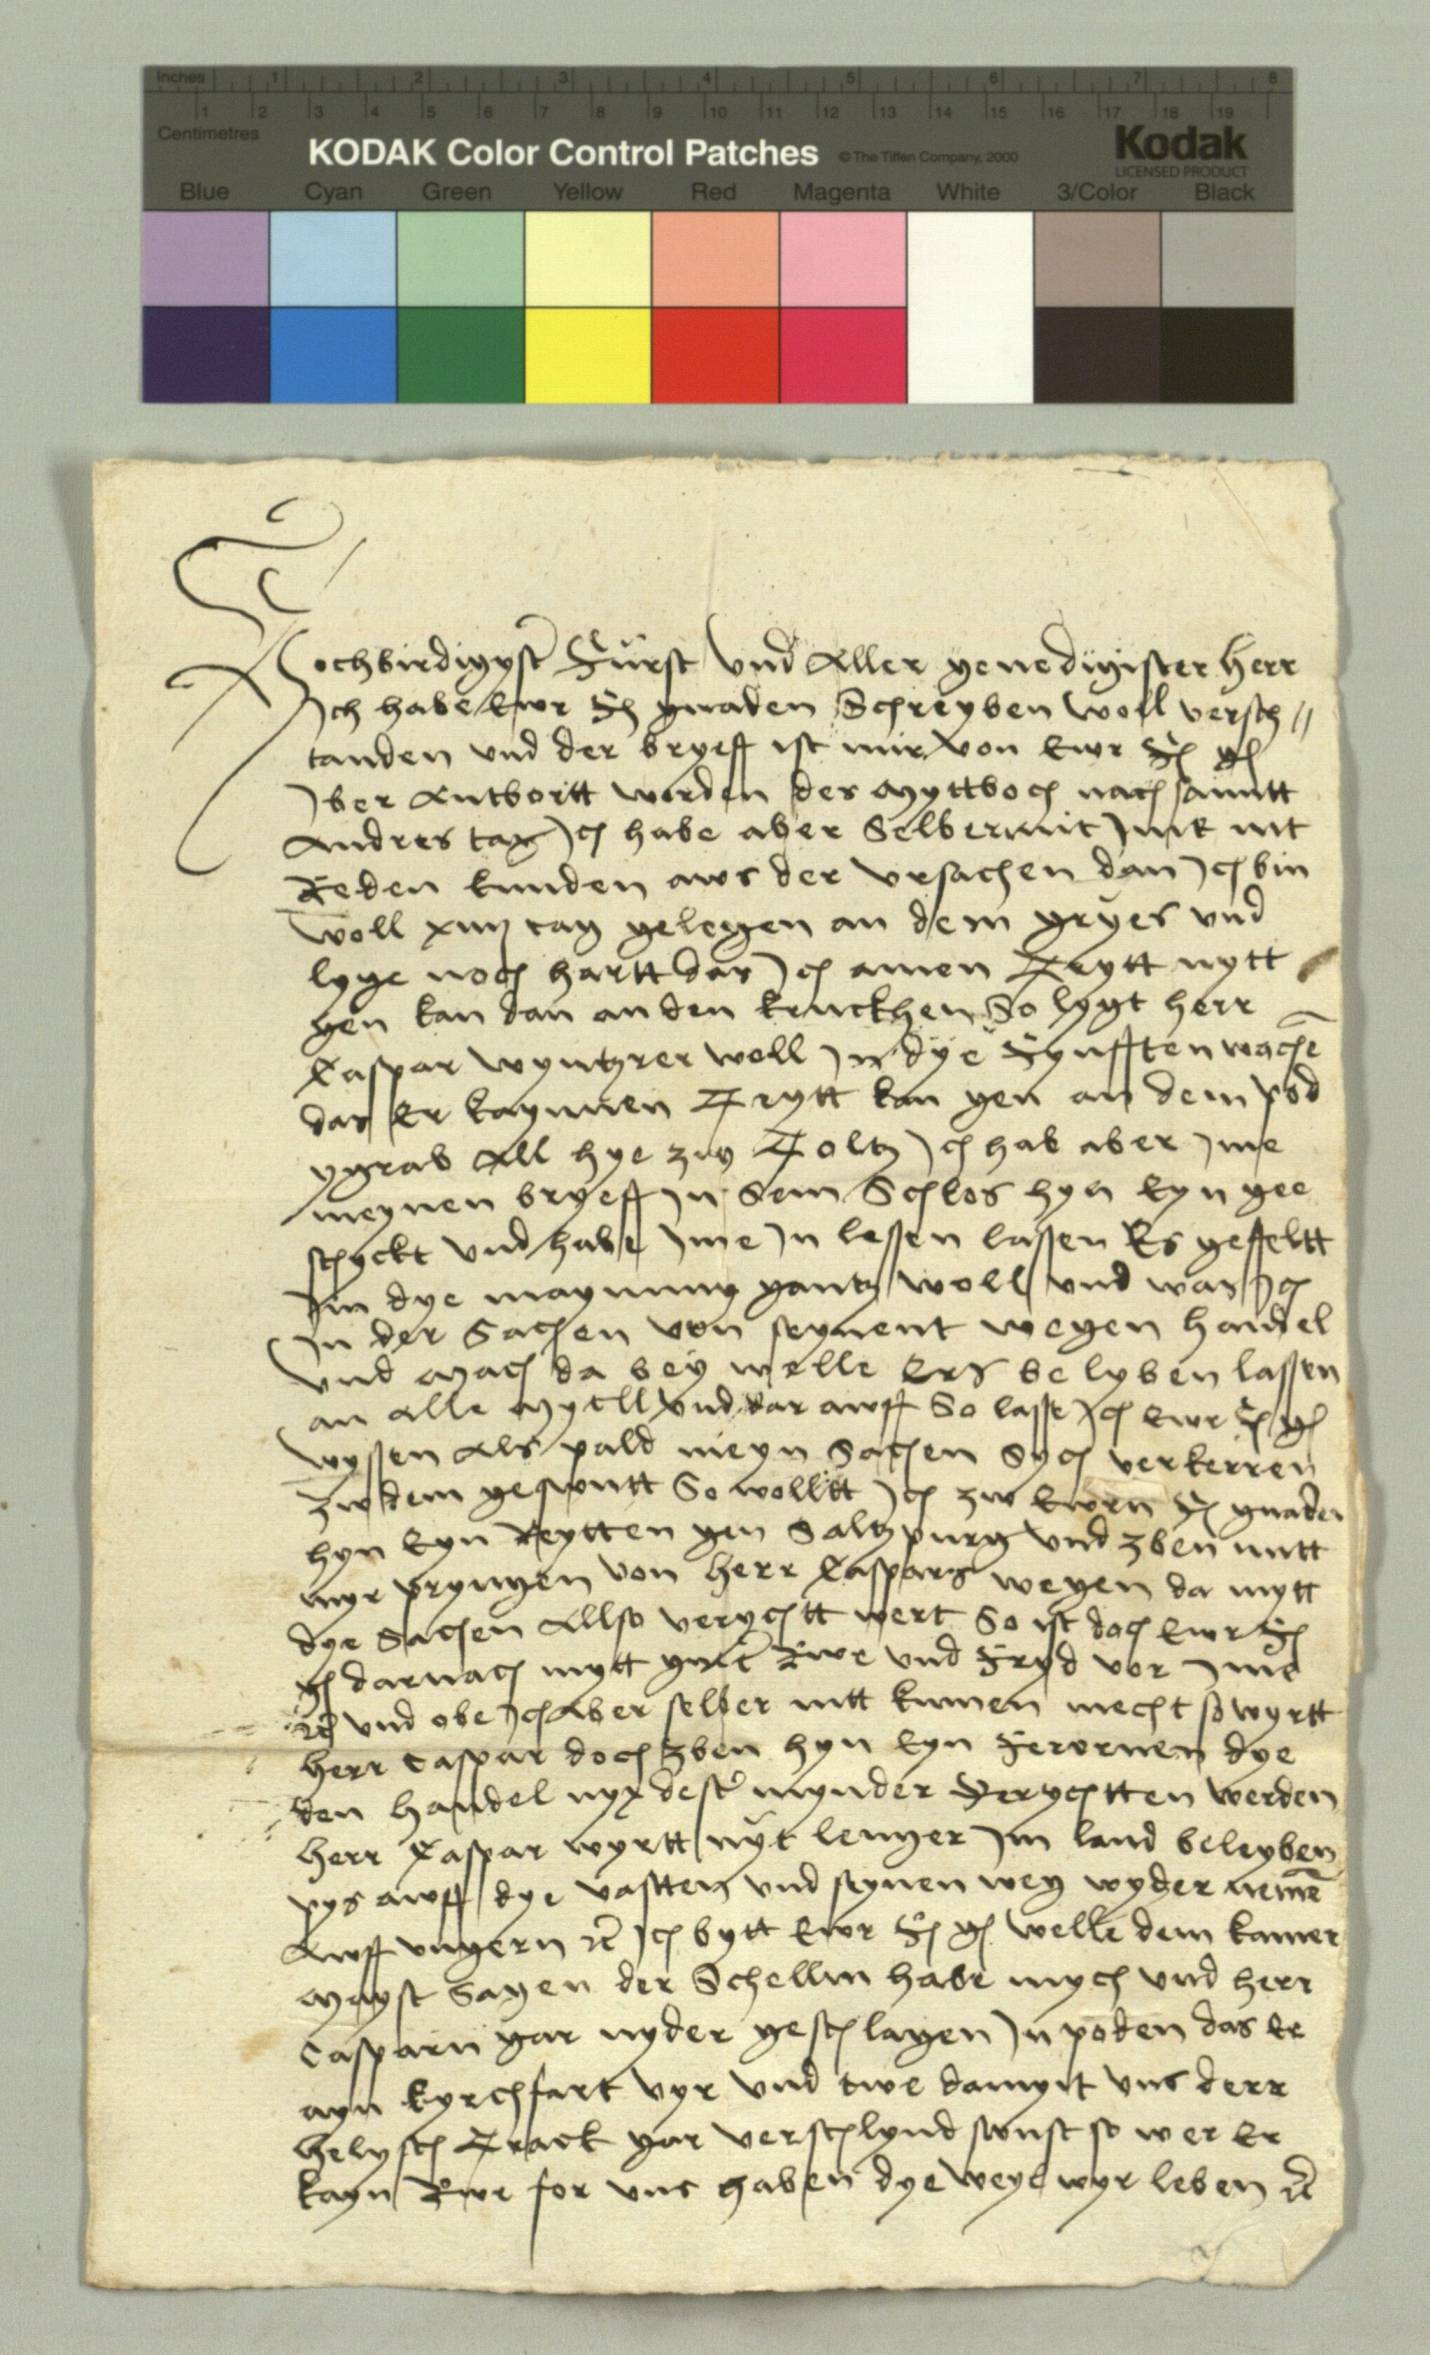 Inches 1 2 3 4 5 6 7 8
1 2 3 4 5 6 7 8 9 10 11 12 13 14 15 16 17 18 19
Centimetres
KODAK Color Control Patches © The Tiffen Company, 2000 Kodak
LICENSED PRODUCT
Blue Cyan Green Yellow Red Magenta White 3/Color Black
Hochbirdigyster Fürst Und Aller genedigister herr
Ich habe Ewr F gnaden Schreyben woll versch//
tanden und der bryeff ist mir von Ewr F g
Iber Antbortt worden des Myttboch nach sanntt
Andres tag Ich habe aber Selber mit Im nit
Reden kunden aws der Ursachen dan Ich bin
woll xiiij tag gelegen an dem gryes und
lyge noch hartt das Ich ainen Trytt nytt
gen kan dan an den kruckhen So lygt herr
Kaspar wyntzrer woll In dye Fynfften wochen
das Er kaynnen Trytt kan gen an dem pod
ygrab All hye zw Toltz Ich hab aber Ime
meynen bryeff In Sein Schlos hyn Eyn gee
schyckt und habe Ime In lessen lassen Es gefeltt
Im dye maynung gantz woll und was Ich
In der Sachen von seynent wegen handel
Und mach da bey welle Ers be lyben lassen
an alle Myttll und dar awff So lasse Ich Ewr F g
wyssen Als pald meyn Sachen Sych verkerren
zw dem gesuntt So wolltt Ich zw Ewrn F gnaden
hyn Eyn Reytten gen Saltzpurg und zben mitt
myr pryngen von herr Kaspars wegen da mytt
dye Sachen Allso verychtt wert So ist doch Ewr F
g darnach mytt gutter Rwe und Fryd vor Ime
etc und obe Ich Aber selber nitt kumen mecht so wyrtt
herr Caspar doch zben hyn Eyn Ferornen dye
den handel nyx dester mynder Verychtten werden
herr Kaspar wyrtt nyt lenger Im land beleyben
pys awff dye vastten und seynen weg wyder nemen
Awff ungern etc Ich bytt Ewr F g welle dem kamer
Mayst Sagen der Schellm habe mych und herr
Casparn gar nyder geschlagen In poden das Er
ayn kyrchfart vyr und twe damyt uns derr
helysch Track gar verschlynd sunst so wer Er
kayn Rwe for uns haben dye weyl wyr leben etc